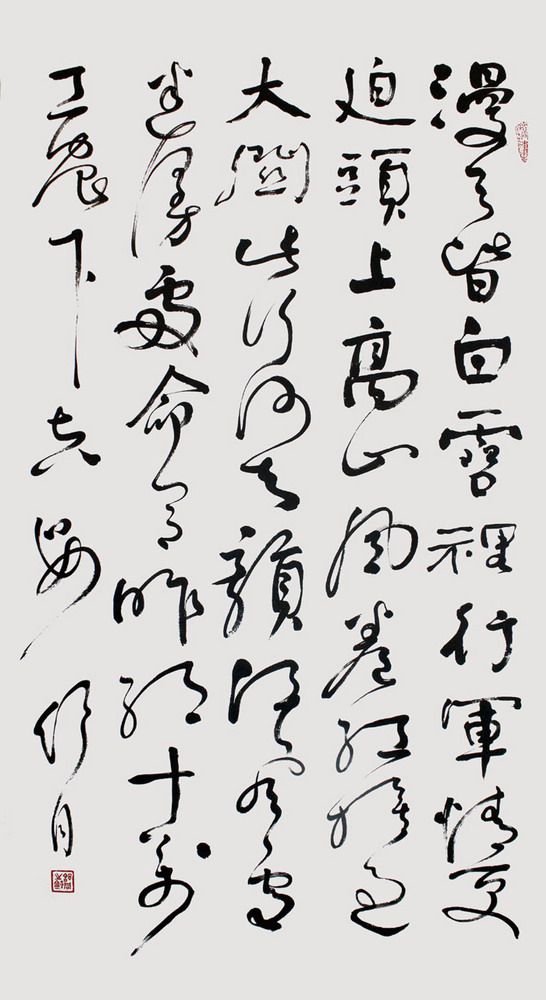 漫天皆白雪裡行軍情更
迫頭上高山風卷紅旗過
大關此行何去贛江風雪
迷漫處命令昨頒十萬
工農下吉安 月